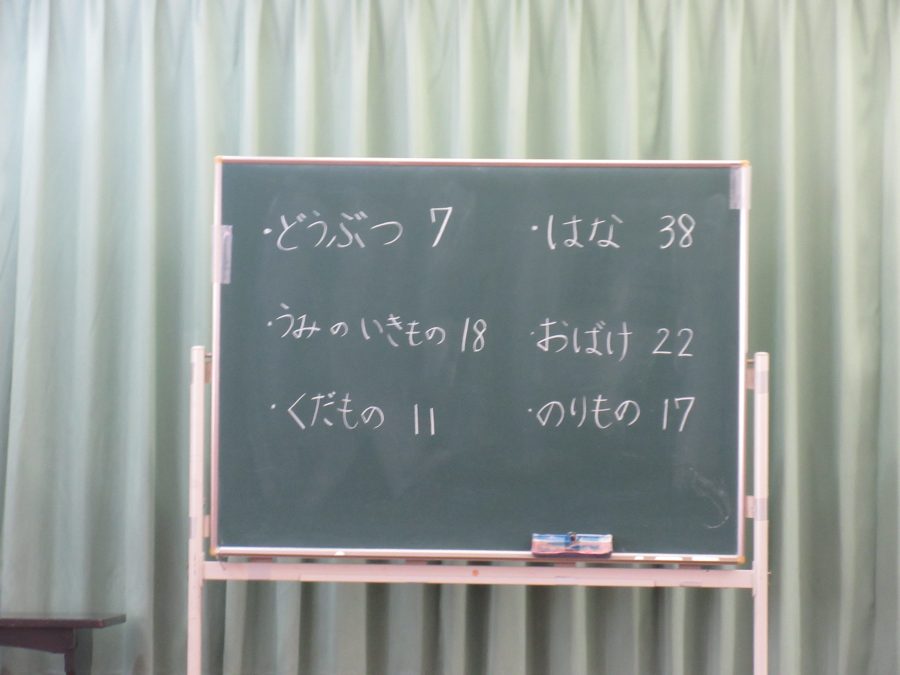 ・どうぶつ 7
・うみのいきもの 18
・くだもの 11
・はな 38
・おばけ 22
・のりもの 17